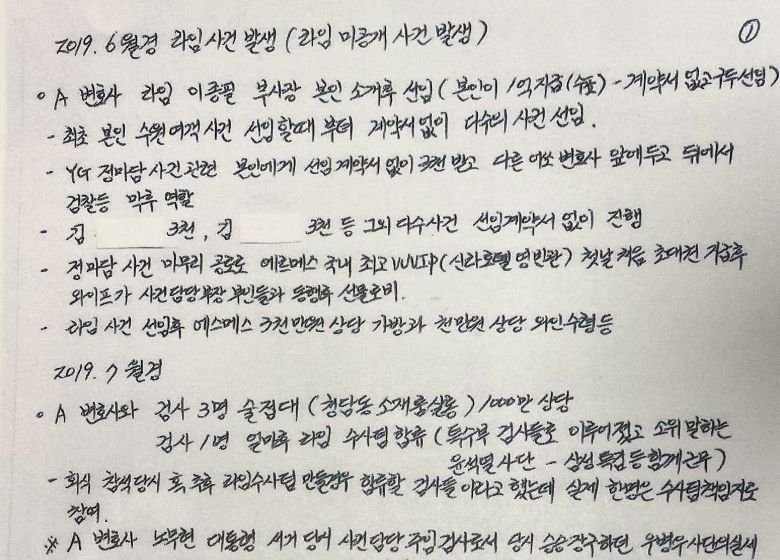 2019. 6월경 라임사건 발생 (라임 미공개 사건 발생) ①
○ A 변호사 라임 이종필 부사장 본인 소개후 선임 (본인이 1억 지급(수표) - 계약서 없고 구두선임)
- 최초 본인 수원여객사건 선임할때 부터 계약서없이 다수의 사건 선임.
- YG 정마담사건 관련 본인에게 선임계약서 없이 3천 받고 다른 변호사 앞에두고 뒤에서
검찰등 막후 역할
- 김 3천, 김 3천 등 그외 다수사건 선임계약서 없이 진행
- 정마담 사건 마무리 공로로 에르메스 국내 최고 VVVIP (신라호텔 영빈관) 첫날 처음 초대권 지급후
와이프가 사건담당부장 부인들과 동행후 선물로비.
- 라임 사건 선임후 에르메스 3천만원 상당 가방과 천만원 상당 와인수령등
2019. 7월경
○ A 변호사와 검사 3명 술접대 (청담동 소재 룸살롱) 1000만 상당
검사 1명 얼마후 라임 수사팀 합류 (특수부 검사들로 이루어졌고 소위 말하는
윤석열사단 - 삼성특검등 함께 근무)
- 회식 참석당시 혹 추후 라임수사팀 만들경우 합류할 검사들이라고 했는데 실제 한명은 수사팀책임자로
참여.
※ A 변호사 노무현 대통령 서거 당시 사건담당 주임검사로서 당시 승승장구하던 우병우사단의 실세